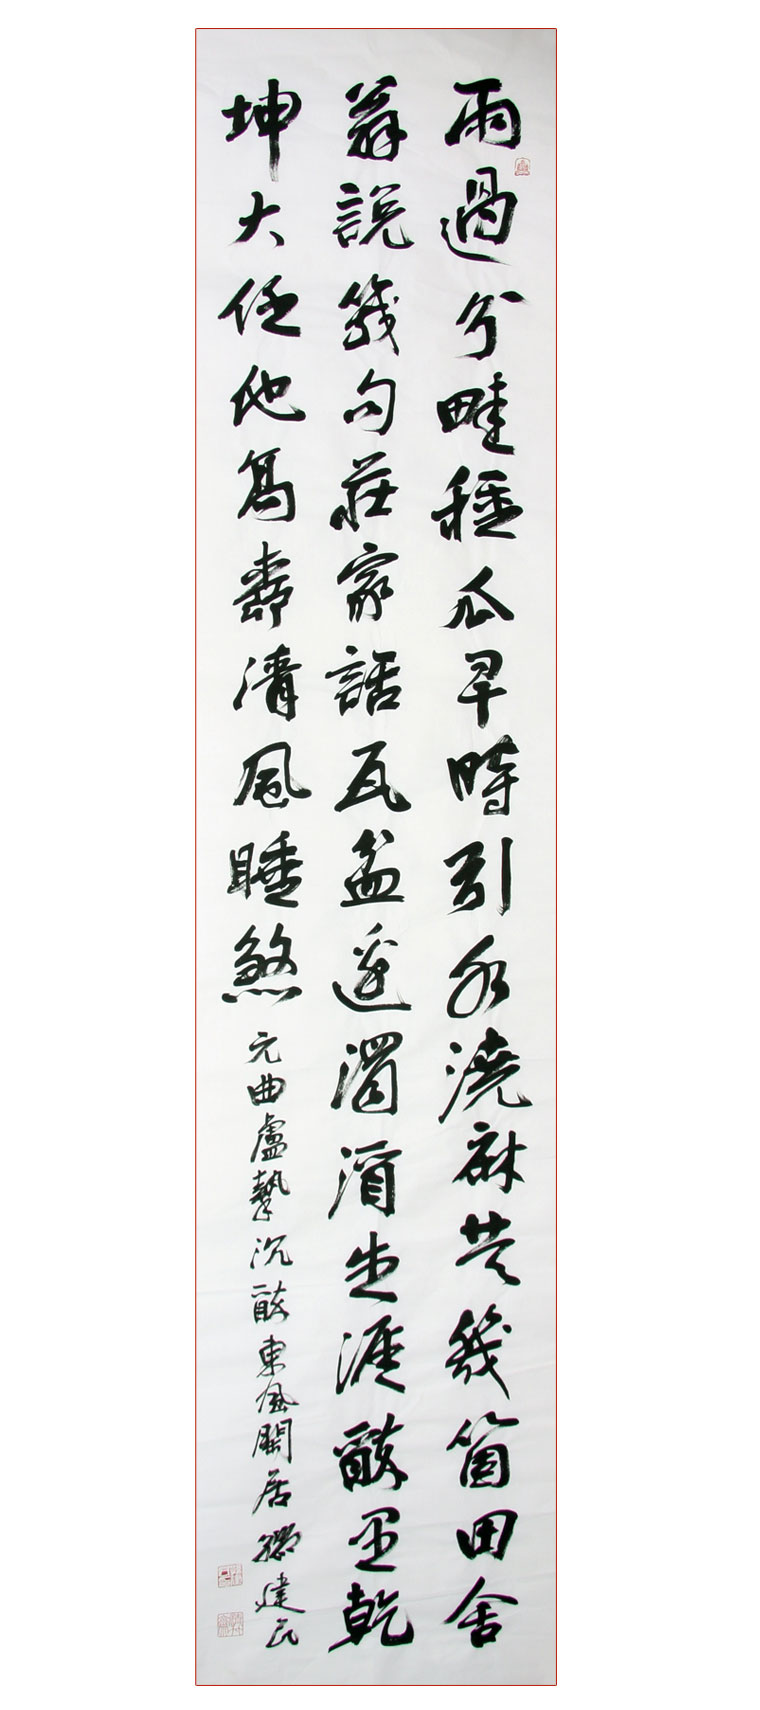 雨過分畦種瓜旱時引水澆麻共幾箇田舍
翁說幾句莊家話瓦盆邊濁酒生涯醉里乾
坤大任他高柳清風睡煞
元曲盧摯沉醉東風閑居 建民